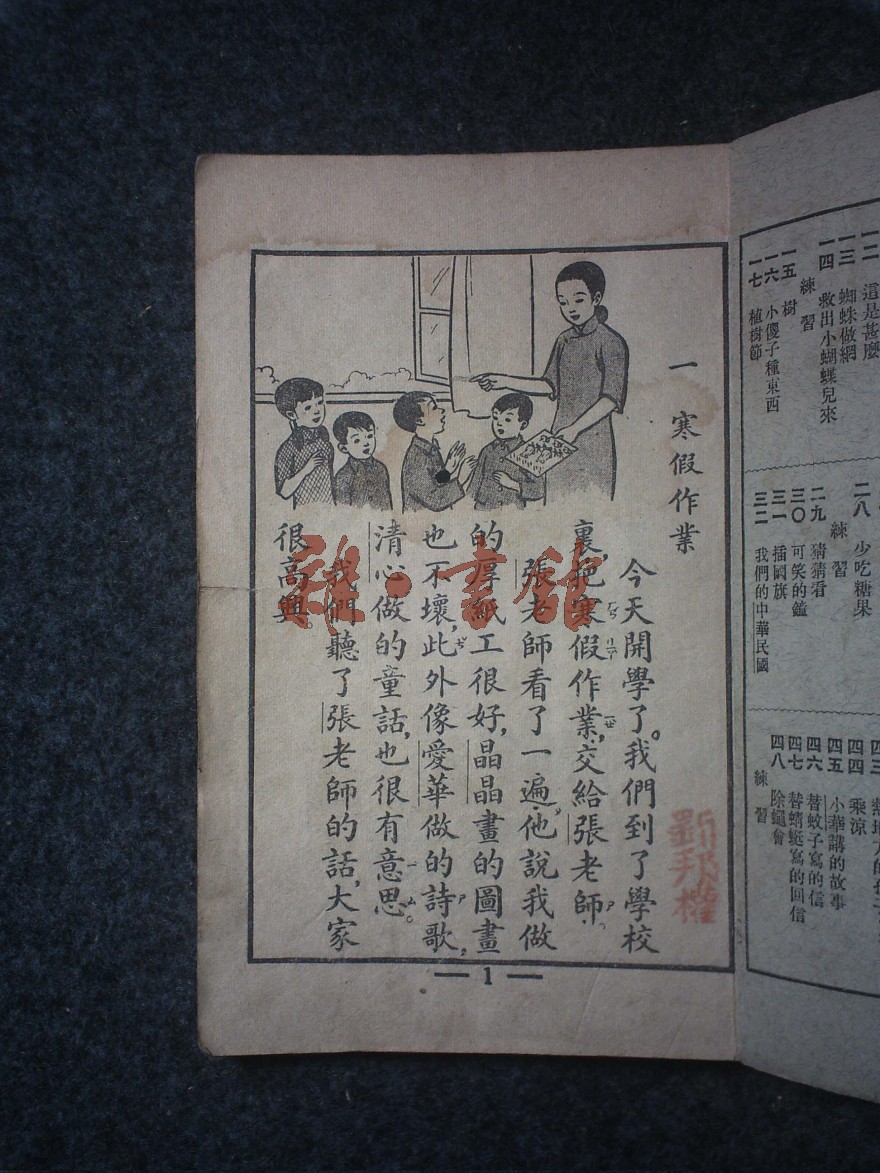 一 寒假作業
今天開學了。我們到了學校
裏，把寒假作業，交給張老師。
張老師看了一遍，他說我做
的厚紙工很好，晶晶畫的圖畫
也不壞，此外像愛華做的詩歌，
清心做的童話，也很有意思。
我們聽了張老師的話，大家
很高興。
1
雜·書館
一二 這是甚麼
一三 蜘蛛做網
一四 救出小蝴蝶兒來
練習
一五 樹
一六 小傻子種東西
一七 植樹節
二八 少吃糖果
練習
二九 猜猜看
三〇 可笑的鐘
三一 插國旗
三二 我們的中華民國
四四 乘涼
四五 小華講的故事
四六 替蚊子寫的信
四七 替蜻蜓寫的回信
四八 除蠅會
練習